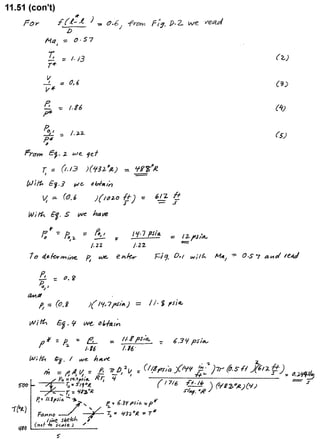 11.51 (con't)
For f(ℓ*-ℓ₁)/D = 0.6, from Fig. D.2 we read
Ma₁ = 0.57
T₁/T* = 1.13 (2)
V₁/V* = 0.6 (3)
P₁/P* = 1.86 (4)
P₀,₁/P₀* = 1.22 (5)
From Eq. 2 we get
T₁ = (1.13)(432°R) = 488°R
With Eq. 3 we obtain
V₁ = (0.6)(1020 ft/s) = 612 ft/s
With Eq. 5 we have
P₀* = P₀,₂ = P₀,₁/1.22 = 14.7 psia/1.22 = 12 psia
To determine P₁ we enter Fig. D.1 with Ma₁ = 0.57 and read
P₁/P₀,₁ = 0.8
and
P₁ = (0.8)(14.7 psia) = 11.8 psia
With Eq. 4 we obtain
P* = P₂ = P₁/1.86 = 11.8 psia/1.86 = 6.34 psia
With Eq. 1 we have
ṁ = ρ₁A₁V₁ = P₁/RT₁ πD²/4 V₁ = (11.8 psia)(144 in.²/ft²)π(0.5 ft)²(612 ft/s)
(1716 ft·lb/slug·°R)(488°R)(4)
500
T(°R)
P₁ = 11.8 psia
P₂ = 6.34 psia = P*
T₂ = 432°R = T*
Fanno line sketch
(not to scale)
400
s